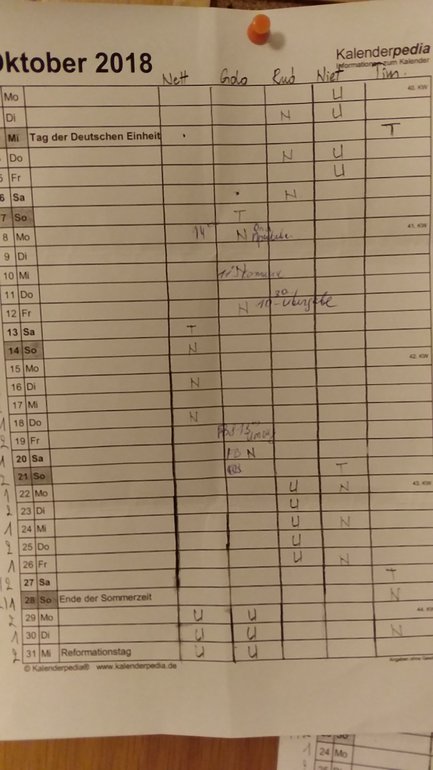 Oktober 2018
Kalenderpedia
Informationen zum Kalender
Nett Rud Niet Tim.
Mo U 40. KW
Di N U
Mi Tag der Deutschen Einheit T
Do N U
5 Fr U
6 Sa N
7 So T
8 Mo N 41. KW
9 Di
10 Mi
11 Do
12 Fr N
13 Sa T
14 So N
15 Mo 42. KW
16 Di N
17 Mi
18 Do N
19 Fr
20 Sa N
21 So T
22 Mo U N 43. KW
23 Di U
24 Mi U N
25 Do U
26 Fr U N
27 Sa T
28 So Ende der Sommerzeit N
29 Mo U U 44. KW
30 Di U U N
31 Mi Reformationstag U U
© Kalenderpedia® www.kalenderpedia.de
Angaben ohne
24 Mo